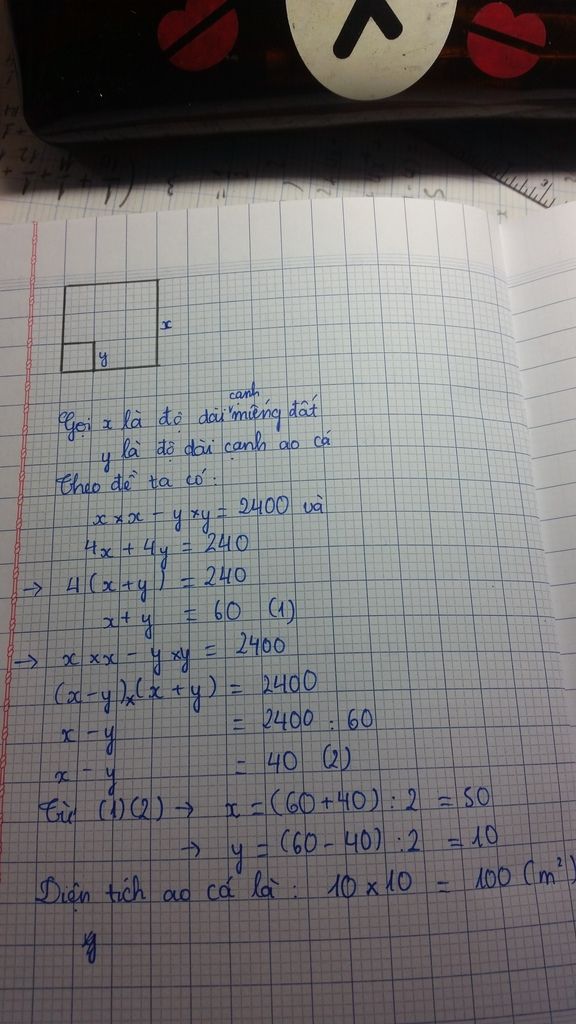 x
y
cạnh
Gọi x là độ dài miếng đất
y là độ dài cạnh ao cá
Theo đề ta có:
x × x - y × y = 2400 và
4x + 4y = 240
→ 4(x + y) = 240
x + y = 60 (1)
→ x × x - y × y = 2400
(x - y) × (x + y) = 2400
x - y = 2400 : 60
x - y = 40 (2)
Từ (1)(2) → x = (60 + 40) : 2 = 50
→ y = (60 - 40) : 2 = 10
Diện tích ao cá là: 10 × 10 = 100 (m²)